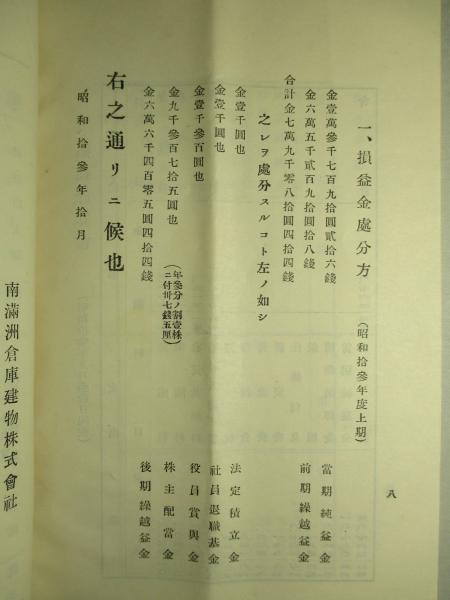 八
一、損益金處分方 (昭和拾參年度上期)
金壹萬參千七百九拾圓貳拾六錢 當期純益金
金六萬五千貳百九拾圓拾八錢 前期繰越益金
合計金七萬九千零八拾圓四拾四錢
之レヲ處分スルコト左ノ如シ
金壹千圓也 法定積立金
金壹千圓也 社員退職基金
金壹千參百圓也 役員賞與金
金九千參百七拾五圓也 (年參分ノ割壹株ニ付卅七錢五厘) 株主配當金
金六萬六千四百零五圓四拾四錢 後期繰越益金
右之通リニ候也
昭和拾參年拾月
南滿洲倉庫建物株式會社